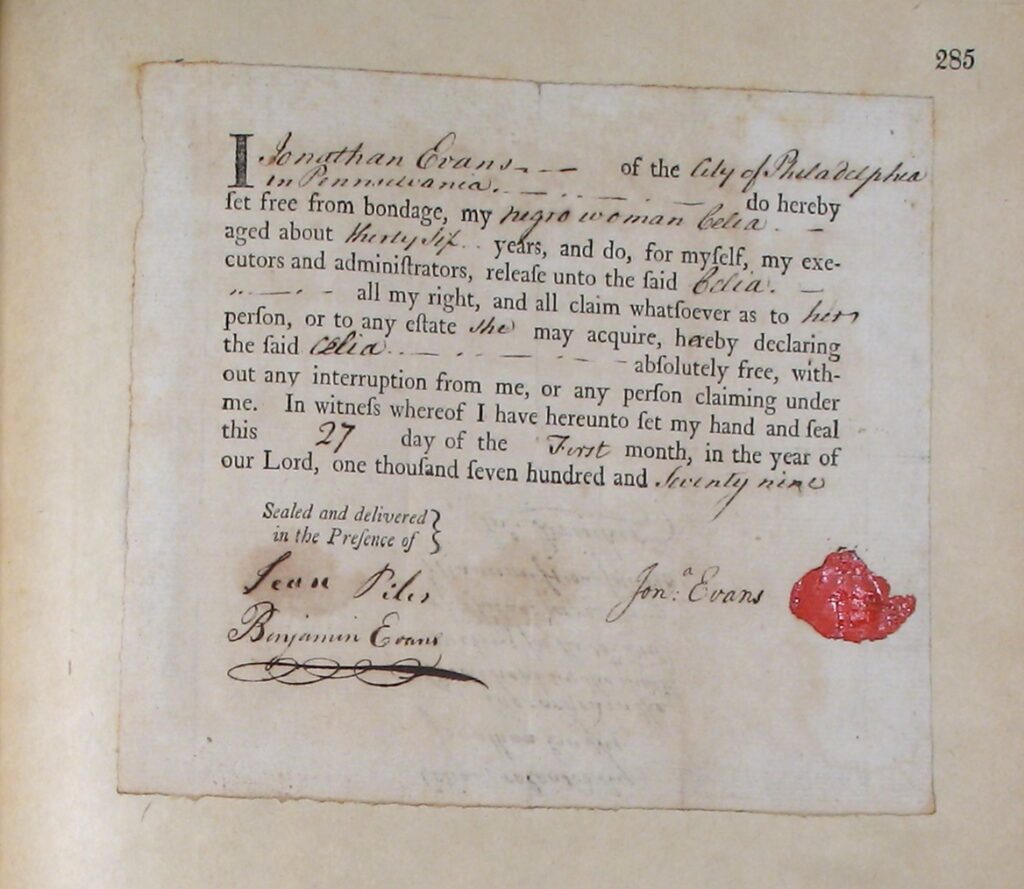 285
I Jonathan Evans of the City of Philadelphia
in Pennsilvania. do hereby
ſet free from bondage, my negro woman Celia
aged about thirty ſix years, and do, for myſelf, my exe-
cutors and adminiſtrators, releaſe unto the ſaid Celia.
all my right, and all claim whatſoever as to her
perſon, or to any eſtate ſhe may acquire, hereby declaring
the ſaid Celia abſolutely free, with-
out any interruption from me, or any perſon claiming under
me. In witneſs whereof I have hereunto ſet my hand and ſeal
this 27 day of the First month, in the year of
our Lord, one thouſand ſeven hundred and Seventy nine
Sealed and delivered }
in the Preſence of
Jon:a Evans
Benjamin Evans